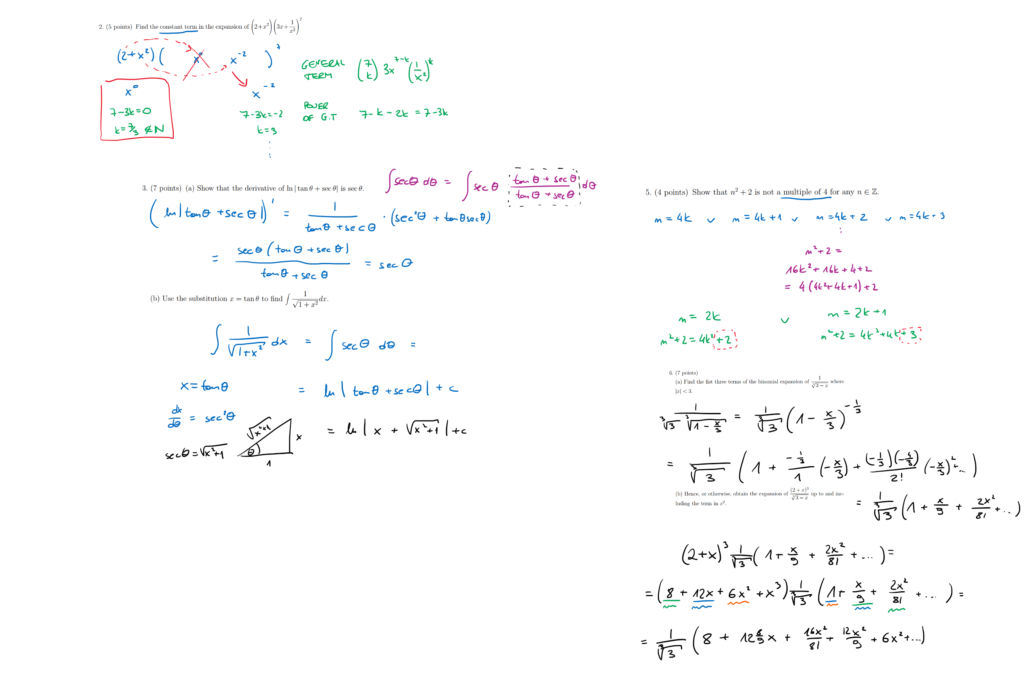 2. (5 points) Find the constant term in the expansion of (2+x²)(3x+1/x²)⁷
(2+x²)( x x⁻² )⁷
GENERAL TERM (7 k) 3x⁷⁻ᵏ (1/x²)ᵏ
x⁰
x⁻²
7-3k=0
k=7/3 ∉ N
7-3k=-2
k=3
POWER OF G.T 7-k-2k = 7-3k
3. (7 points) (a) Show that the derivative of ln|tan θ + sec θ| is sec θ.
∫secθ dθ = ∫secθ (tanθ + secθ)/(tanθ + secθ) dθ
(ln|tanθ + secθ|)' = 1/(tanθ + secθ) · (sec²θ + tanθsecθ)
= secθ(tanθ + secθ)/(tanθ + secθ) = secθ
(b) Use the substitution x = tan θ to find ∫ 1/√(1+x²) dx.
∫ 1/√(1+x²) dx = ∫ secθ dθ =
x = tanθ = ln|tanθ + secθ| + c
dx/dθ = sec²θ
= ln|x + √(x²+1)| + c
secθ = √(x²+1)
√(x²+1) θ x
1
5. (4 points) Show that n² + 2 is not a multiple of 4 for any n ∈ Z.
n = 4k v n = 4k+1 v n = 4k+2 v n = 4k+3
n²+2 =
16k² + 16k + 4+2
= 4(4k²+4k+1)+2
n = 2k v n = 2k+1
n²+2 = 4k²+2
n²+2 = 4k²+4k+3
6. (7 points)
(a) Find the fist three terms of the binomial expansion of 1/∛(3−x) where
|x| < 3.
1/(∛3 ∛(1−x/3)) = 1/∛3 (1 − x/3)^(−1/3)
= 1/∛3 (1 + (−1/3)/1 (−x/3) + (−1/3)(−4/3)/2! (−x/3)² ...)
(b) Hence, or otherwise, obtain the expansion of (2+x)³/∛(3−x) up to and in-
cluding the term in x².
= 1/∛3 (1 + x/9 + 2x²/81 + ...)
(2+x)³ 1/∛3 (1 + x/9 + 2x²/81 + ...) =
= (8 + 12x + 6x² + x³) 1/∛3 (1 + x/9 + 2x²/81 + ...) =
= 1/∛3 (8 + 12 8/9 x + 16x²/81 + 12x²/9 + 6x² + ...)